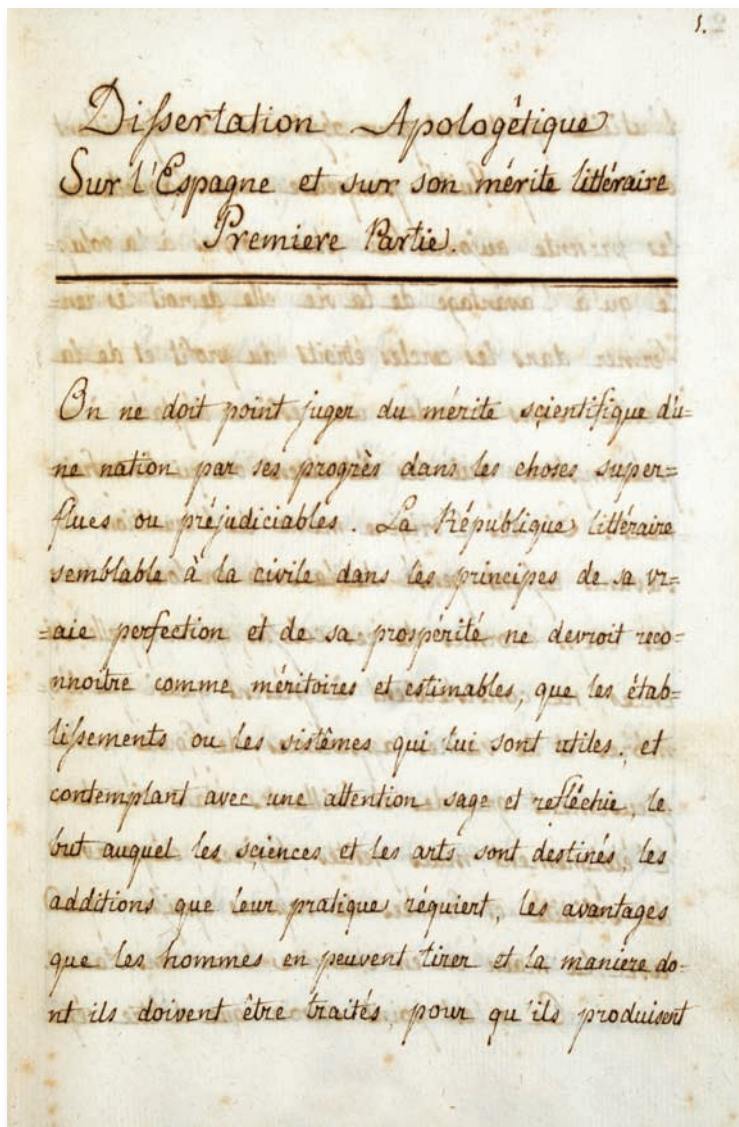 1.
Dissertation Apologétique
Sur l'Espagne et sur son mérite littéraire
Premiere Partie.
On ne doit point juger du mérite scientifique d'u=
ne nation par ses progrès dans les choses super=
flues ou préjudiciables. La République littéraire
semblable à la civile dans les principes de sa vr=
=aie perfection et de sa prospérité ne devroit reco=
nnoitre comme méritoires et estimables, que les étab=
lissements ou les sistêmes qui lui sont utiles, et
contemplant avec une attention sage et refléchie, le
but auquel les sciences et les arts sont destinés, les
additions que leur pratique réquiert, les avantages
que les hommes en peuvent tirer et la maniere do=
nt ils doivent être traités, pour qu'ils produisent